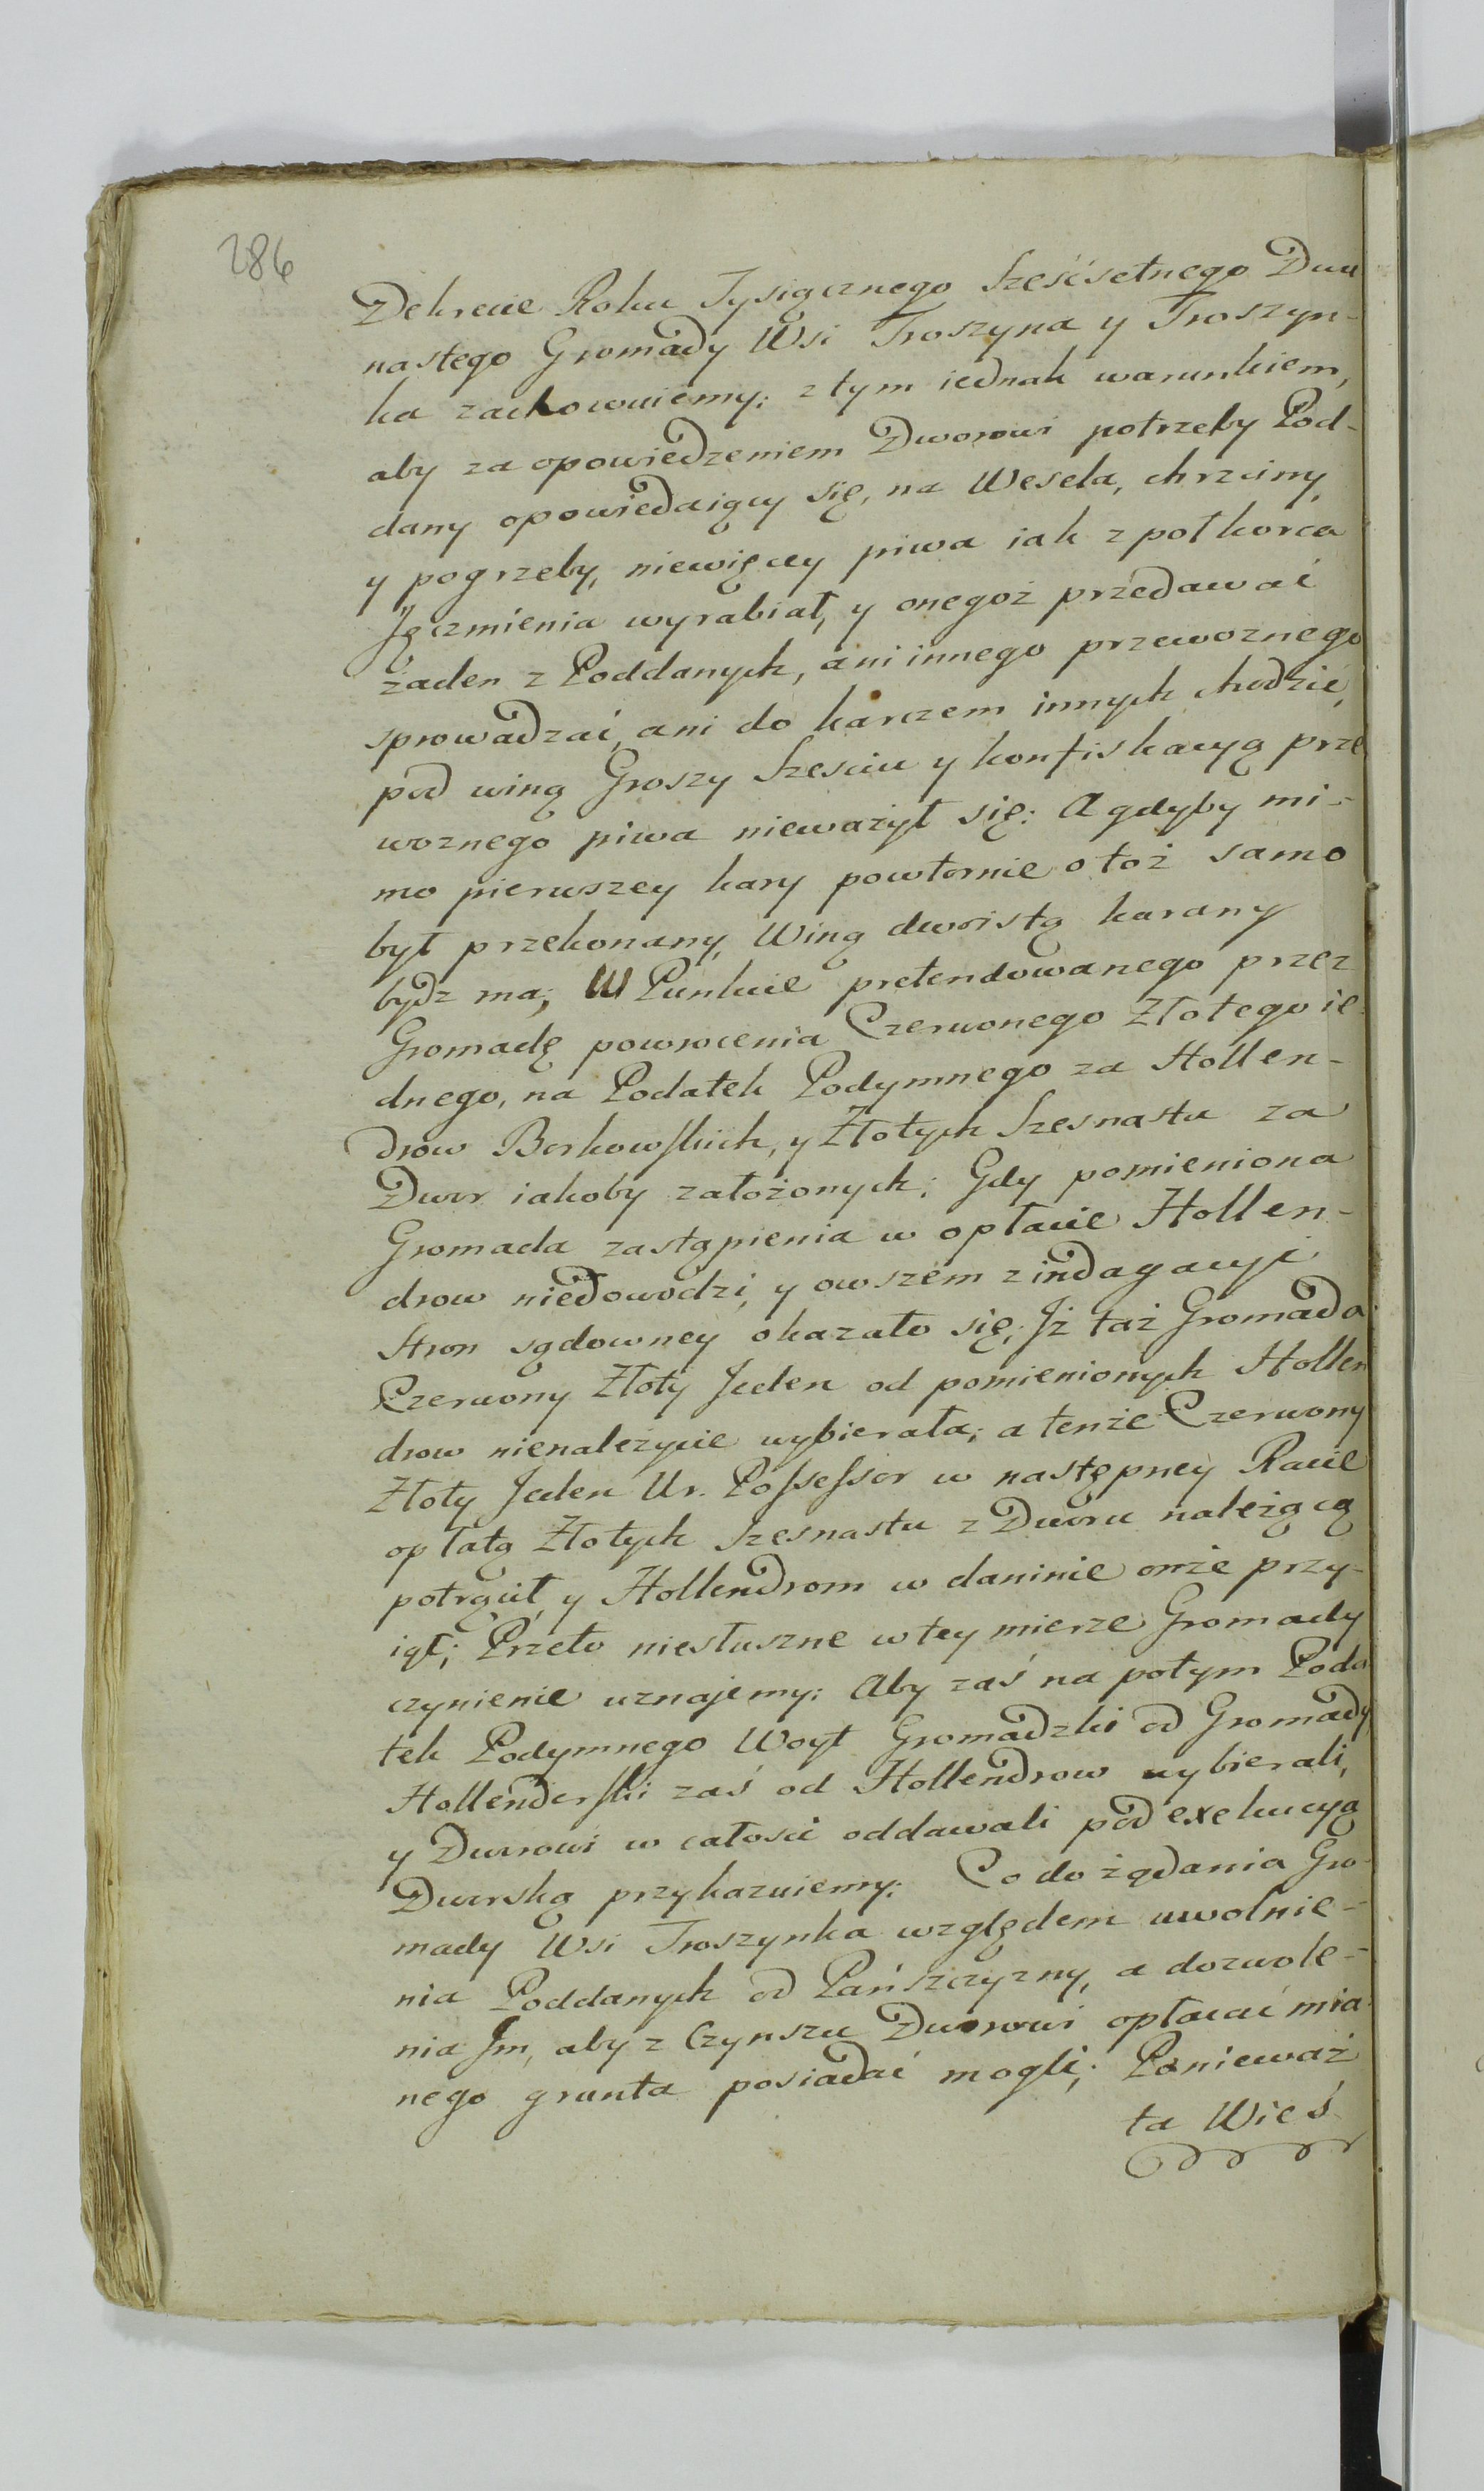 286
Dekrecie Roku Tysiącznego Sześćsetnego Dwu
nastego Gromady Wsi Troszyna y Troszyn-
ka zachowuiemy; z tym iednak warunkiem,
aby za opowiedzeniem Dworowi potrzeby Pod-
dany opowiedaiący się, na Wesela, chrzciny,
y pogrzeby, niewięcey piwa iak z poł korca
Jęczmienia wyrabiał, y onegoż przedawać
żaden z Poddanych, ani innego przewoznego
sprowadzać, ani do karczem innych chodzić,
pod winą Groszy Szesciu y konfiskacyą prze
woznego piwa nieważył się: A gdyby mi-
mo pierwszey kary powtornie o toż samo
był przekonany, Winą dwoistą karany
bydz ma; W Punkcie pretendowanego przez
Gromadę powrocenia Czerwonego Złotego ie
dnego, na Podatek Podymnego za Hollen-
drow Borkowskich, y Złotych Szesnastu za
Dwor iakoby założonych; Gdy pomieniona
Gromada zastąpienia w opłacie Hollen-
drow niedowodzi, y owszem z indagacyi
stron sądowney okazało się, Jż taż Gromada
Czerwony Złoty Jeden od pomienionych Hollen
drow nienależycie wybierała; a tenże Czerwony
Złoty Jeden Ur. Possessor w następney Racie
opłatą Złotych Szesnastu z Dworu należącą
potrącił, y Hollendrom w daninie onże przy-
iął; Przeto niesłuszne w tey mierze Gromady
czynienie uznajemy: Aby zaś na potym Poda
tek Podymnego Woyt Gromadzki od Gromady
Hollenderski zaś od Hollendrow wybierali,
y Dworowi w całosci oddawali pod exekucyą
Dworską przykazuiemy: Co do żądania Gro-
mady Wsi Troszynka względem uwolnie-
nia Poddanych od Pańszczyzny, a dozwole-
nia Jm, aby z Czynszu Dworowi opłacać mia
nego grunta posiadać mogli; Ponieważ
ta Wieś